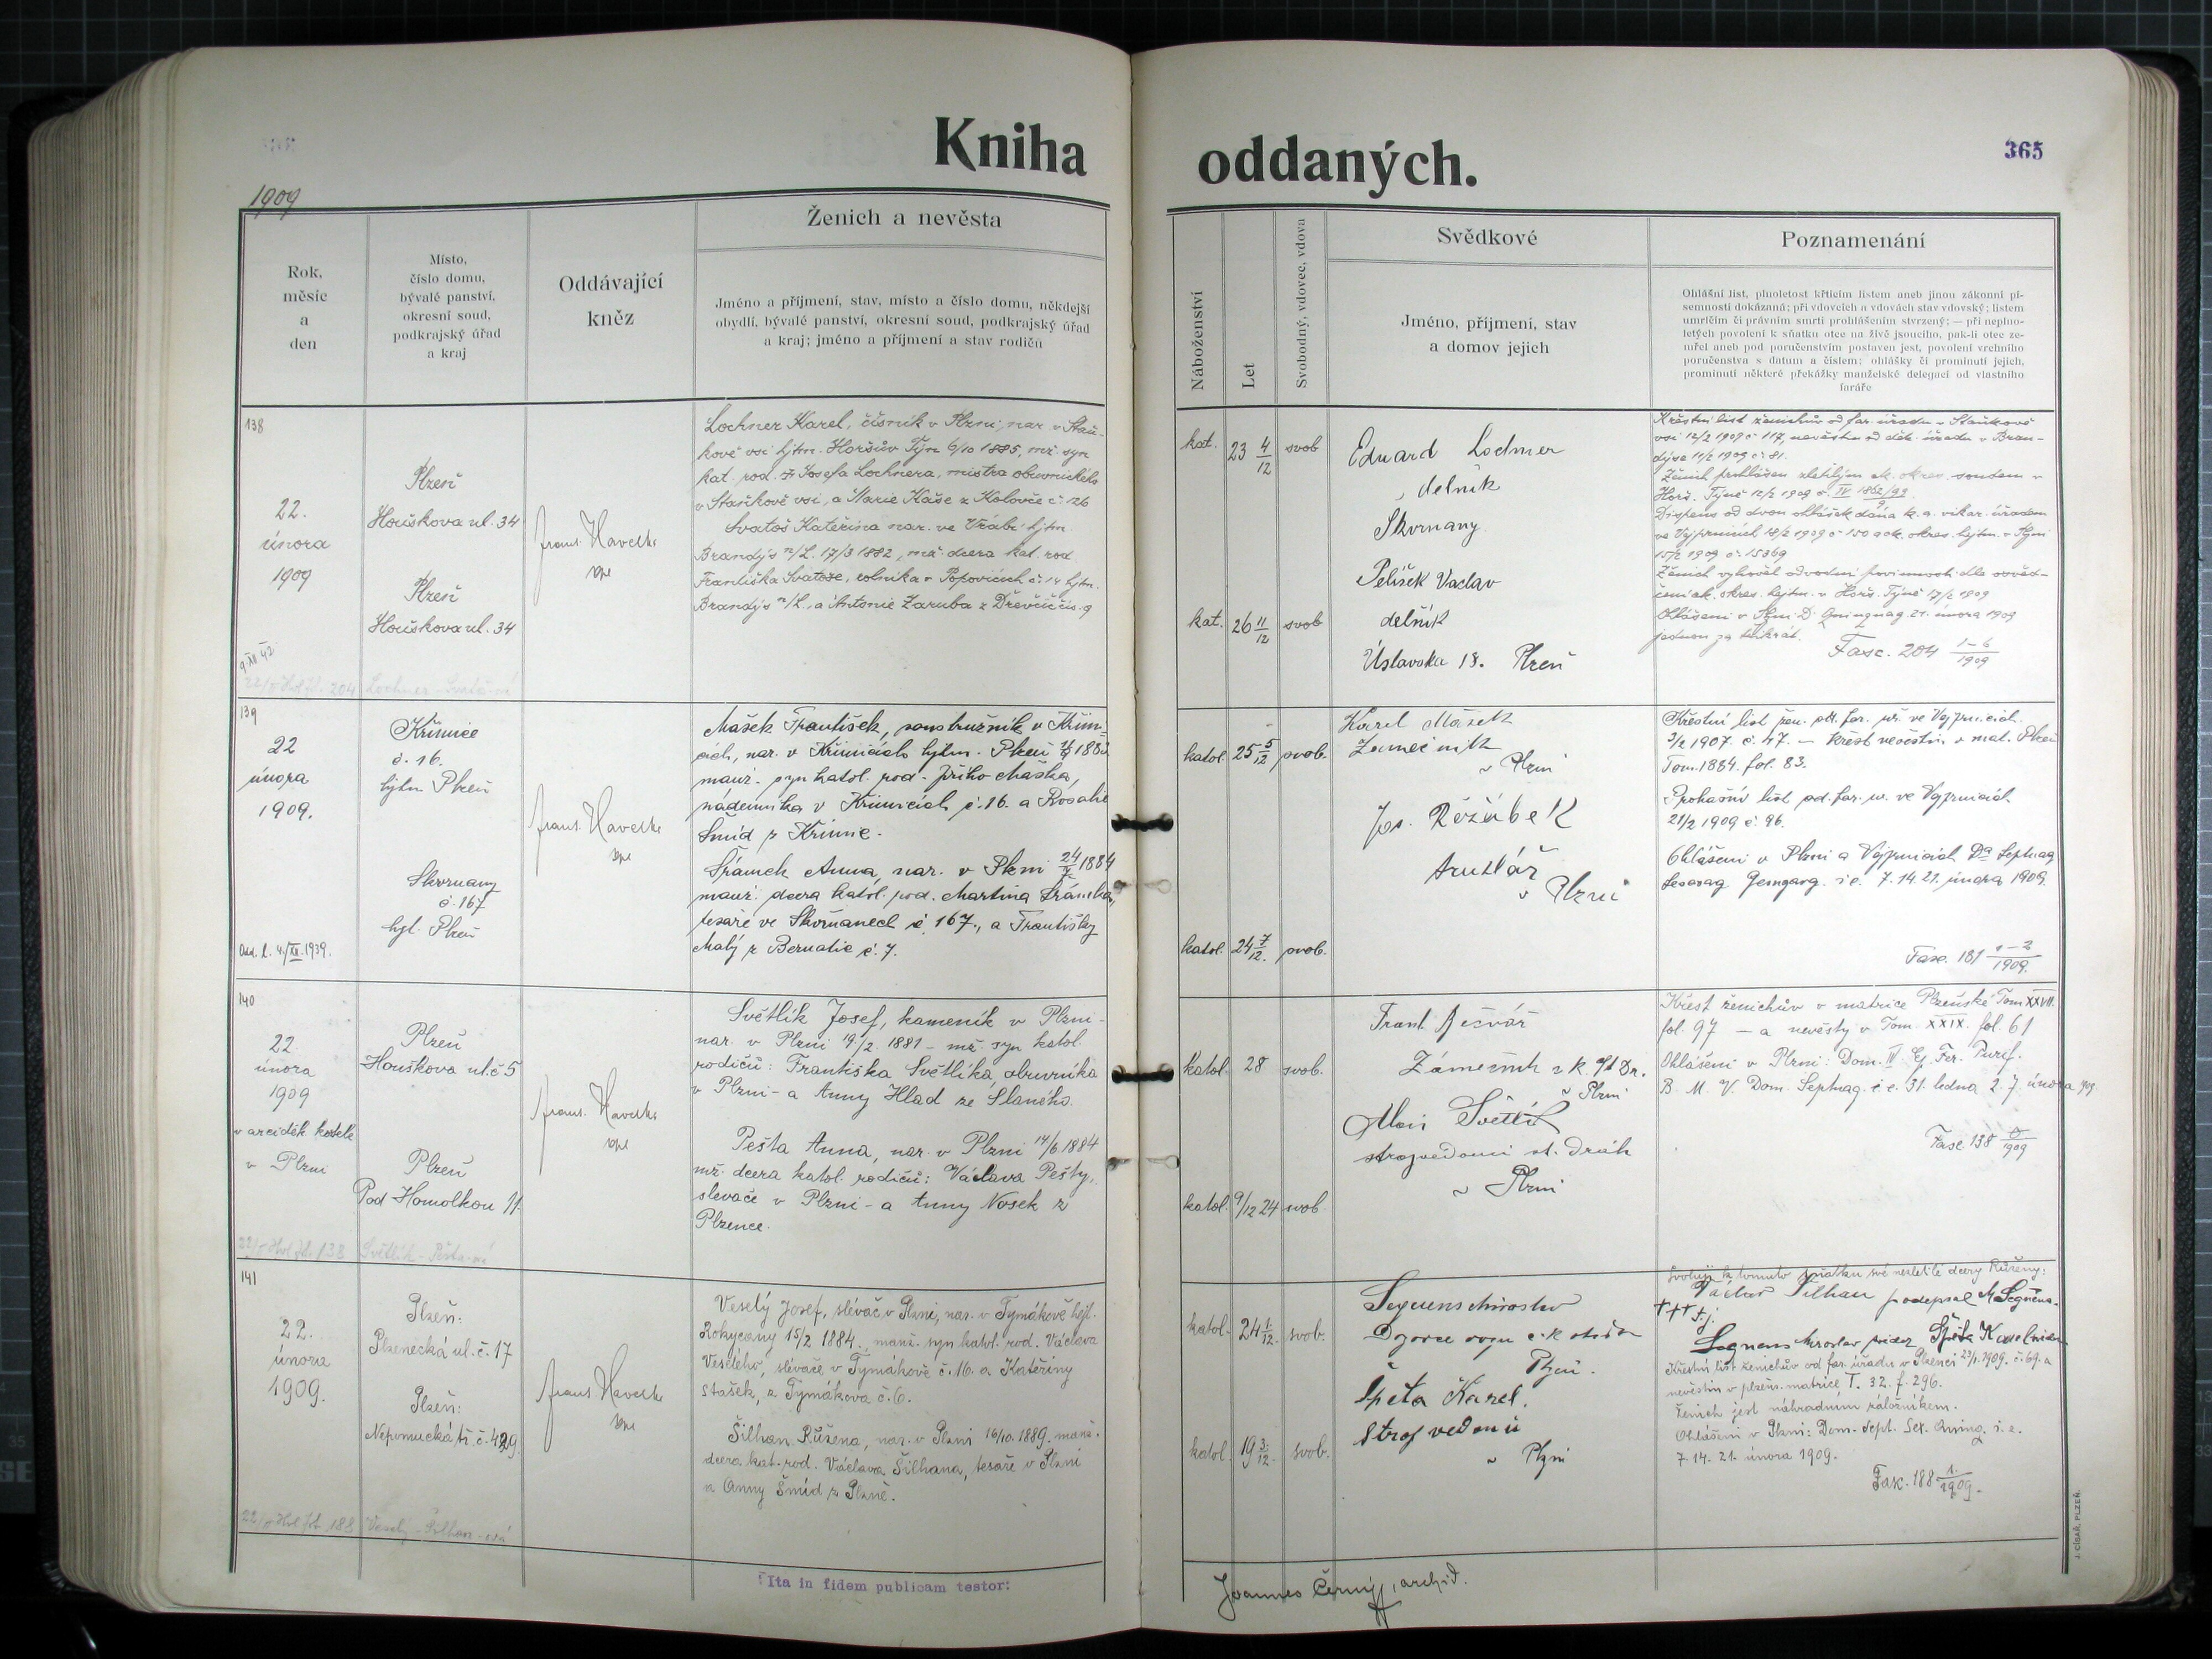 Kniha oddaných.
365
1909
Ženich a nevěsta
Rok,
měsíc
a
den
Místo,
číslo domu,
bývalé panství,
okresní soud,
podkrajský úřad
a kraj
Oddávající
kněz
Jméno a příjmení, stav, místo a číslo domu, někdejší
obydlí, bývalé panství, okresní soud, podkrajský úřad
a kraj; jméno a příjmení a stav rodičů
Náboženství
Let
Svobodný, vdovec, vdova
Svědkové
Jméno, příjmení, stav
a domov jejich
Poznamenání
Ohlášní list, plnoletost křticím listem aneb jinou zákonní pí-
semností dokázaná; při vdovcích a vdovách stav vdovský; listem
umrlčím či právním smrti prohlášením stvrzený; — při neplno-
letých povolení k sňatku otce na živě jsoucího, pak-li otec ze-
mřel aneb pod poručenstvím postaven jest, povolení vrchního
poručenstva s datum a číslem; ohlášky či prominutí jejich,
prominutí některé překážky manželské delegací od vlastního
faráře
138
22.
února
1909
Plzeň
Houškova ul. 34
Plzeň
Houškova ul. 34
Frant. Havelka
Lochner Karel, číšník v Plzni, nar. v Staň-
kově vsi hjtm. Horšův Týn 6/10 1885, mž. syn
kat. rod. Josefa Lochnera, mistra obuvnického
v Staňkově vsi, a Marie Kaše z Koloveče č. 126
Svatoš Kateřina nar. ve Vrábí hjtm.
Brandýs n/L. 17/3 1882, mž. dcera kat. rod.
Františka Svatoše, rolníka v Popovicích č. 14 hjtm.
Brandýs n/L., a Antonie Zaruba z Dřevčic čís. 9
kat. 23 4/12 svob
kat. 26 11/12 svob
Eduard Lochner
dělník
Skvrnany
Pelíšek Vaclav
dělník
Úslavska 18. Plzeň
Křestní list ženichův od far. úřadu v Staňkově
vsi 12/2 1909 č 117, nevěstin od děk. úřadu v Bran-
dýse 11/2 1909 č. 81.
Ženich prohlášen zletilým ck. okres. soudem v
Horš. Týně 12/2 1909 č. IV 1862/99
15/2 1909 č. 15369
Horš. Týně 17/2 1909
21. února 1909
jednou za třikrát.
Fasc. 204 1–6/1909
139
22
února
1909.
Křimice
č. 16.
hjtm Plzeň
Skvrnany
č. 167
hejt. Plzeň
Odd. l. 4./XII. 1939.
Frant. Havelka
Mašek František, soustružník v Křimi-
cích, nar. v Křimicích hejtm. Plzeň
manž. syn katol. rod. Jiřího Maška,
nádenníka v Křimicích č. 16. a Rosalie
Šmíd z Křimic.
Šrámek Anna, nar. v Plzni 1884
manž. dcera katol. rod. Martina Šrámka,
tesaře ve Skvrňanech č. 167., a Františky
Malý z Bernatic č. 7.
katol. 25 5/12 svob.
katol. 24 7/12. svob.
Karel Mašek
Zámečník
v Plzni
Jos. Réžábek
truhlář
v Plzni
Křestní list žen. od far. úř. ve Vejprnicích
3/2 1907. č. 47. — křest nevěstin v mat. Plzeň
Tom. 1884. fol. 83.
Prohlašní list od. far. úř. ve Vejprnicích
21/2 1909 č. 96.
Ohlášeni v Plzni a Vejprnicích Septuag
i. e. 7. 14. 21. února 1909.
Fasc. 181 1–2/1909.
140
22.
února
1909
v arciděk. kostele
v Plzni
Plzeň
Houškova ul. č 5
Plzeň
Pod Homolkou 11.
Světlík - Pešta-ová
Frant. Havelka
Světlík Josef, kameník v Plzni -
nar. v Plzni 19./2. 1881 - mž. syn katol.
rodičů: Františka Světlíka, obuvníka
v Plzni - a Anny Hlad ze Slaného.
Pešta Anna, nar. v Plzni 14/6 1884
mž. dcera katol. rodičů: Václava Pešty,
slevače v Plzni - a Anny Nosek z
Plzence.
katol. 28 svob.
katol. 9/12 24 svob
Frant. Bečvář
Zámečník c. k. st Dr.
v Plzni
Alois Světlík
strojvedoucí st. Dráh
v Plzni
Křest ženichův v matrice Plzeňské Tom XXVII.
fol. 97 — a nevěsty v Tom. XXIX. fol. 61
Ohlášeni v Plzni: Dom. IV. Ep. Fer. Puref.
B. M. V. Dom. Septuag. i. e. 31. ledna 2. 7. února 909
Fasc 138 0/1909
141
22.
února
1909.
Plzeň:
Plzenecká ul. č. 17
Plzeň:
Nepomucká tř. č. 429
Veselý - Šilhan - ová
Frant Havelka
Veselý Josef, slévač v Plzni, nar. v Tymákově hejt.
Rokycany 15/2 1884., manž. syn katol. rod. Václava
Veselého, slévače v Tymákově č. 16. a Kateřiny
Stašek, z Tymákova č. 6.
Šilhan Růžena, nar. v Plzni 16/10. 1889. manž.
dcera kat. rod. Václava Šilhana, tesaře v Plzni
a Anny Šmíd z Plzně.
katol. 24 1./12. svob.
katol. 19 3./12. svob.
Segnens Miroslav
Dozorce c. k. drah
Plzeň.
Špéta Karel.
Strojvedoucí
v Plzni
Svoluji k tomuto sňatku své nezletilé dcery Růženy:
Václav Šilhan podepsal M Segnens.
+++
Křestní list ženichův od far. úřadu v Plzenci 23/1. 1909. č. 69. a
nevěstin v plzeň. matrice T. 32. f. 296.
Ženich jest náhradním záložníkem.
Ohlášeni v Plzni: Dom. Sept. Sex. Quinq. i. e.
7. 14. 21. února 1909.
Fasc. 188 1./1909.
Ita in fidem publicam testor:
Joannes Černý, archid.
J. CÍSAŘ, PLZEŇ.